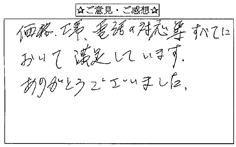 ☆ご意見・ご感想☆
価格、工事、電話の対応等すべてに
おいて満足しています。
ありがとうございました。